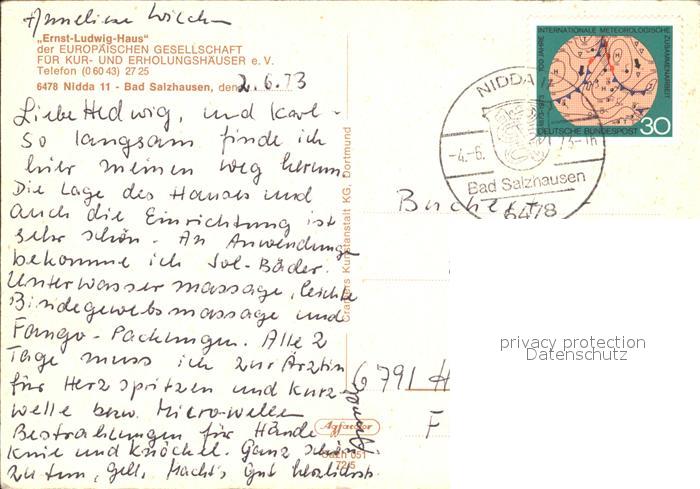 Anneliese
„Ernst-Ludwig-Haus"
der EUROPÄISCHEN GESELLSCHAFT
FÜR KUR- UND ERHOLUNGSHÄUSER e. V.
Telefon (0 60 43) 27 25
6478 Nidda 11 - Bad Salzhausen, den 2.6.73
Liebe Hedwig, und Karl -
So langsam finde ich
hier meinen Weg herum
Die Lage des Hauses und
auch die Einrichtung ist
sehr schön. An Anwendungen
bekomme ich Sol-Bäder.
Unterwassermassage, leichte
Bindegewebsmassage und
Fango-Packungen. Alle 2
Tage muss ich zur Ärztin
für Herzspritzen und Kurz
welle bzw. Micro-wellen
Bestrahlungen für Hände
Knie und Knöchel. Ganz schön
zu tun, gell. Macht's gut herzlichst
Cramers Kunstanstalt KG, Dortmund
Agfacolor
051
72/5
100 JAHRE INTERNATIONALE METEOROLOGISCHE ZUSAMMENARBEIT
1873-1973
DEUTSCHE BUNDESPOST 30
NIDDA
-4.-6.
73-
Bad Salzhausen
6478
6791 H
F
privacy protection
Datenschutz